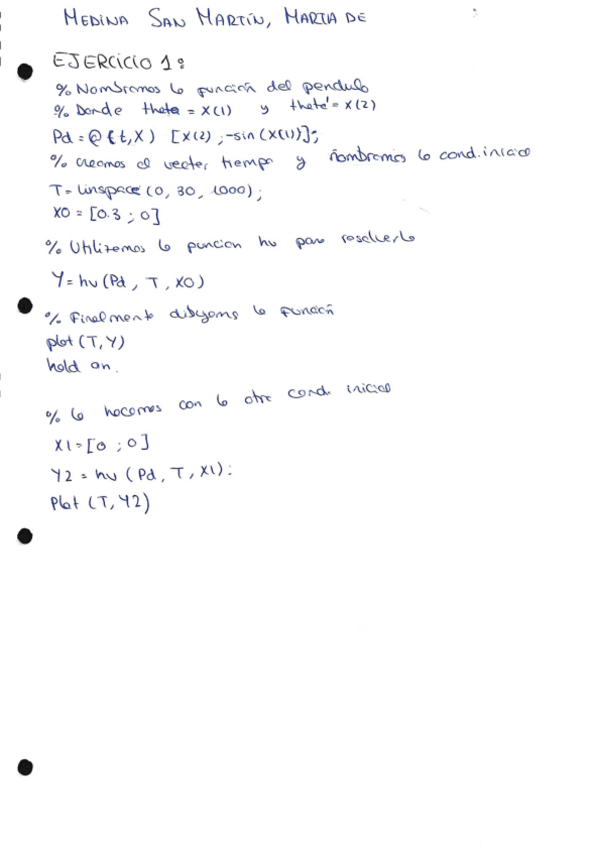 MEDINA SAN MARTÍN, MARTA DE
EJERCICIO 1:
% Nombramos la función del pendulo
% Donde theta = X(1) y theta' = X(2)
Pd = @(t,X) [X(2) ; -sin(X(1))];
% Creamos el vector tiempo y nombramos la cond. inicial
T = linspace(0, 30, 1000);
X0 = [0.3 ; 0]
% Utilizamos la funcion hv para resolverlo
Y = hv(Pd, T, X0)
% Finalmente dibujams la función
plot(T,Y)
hold on.
% lo hacemos con la otra cond. inicial
X1 = [0 ; 0]
Y2 = hv (Pd, T, X1):
Plot (T, Y2)